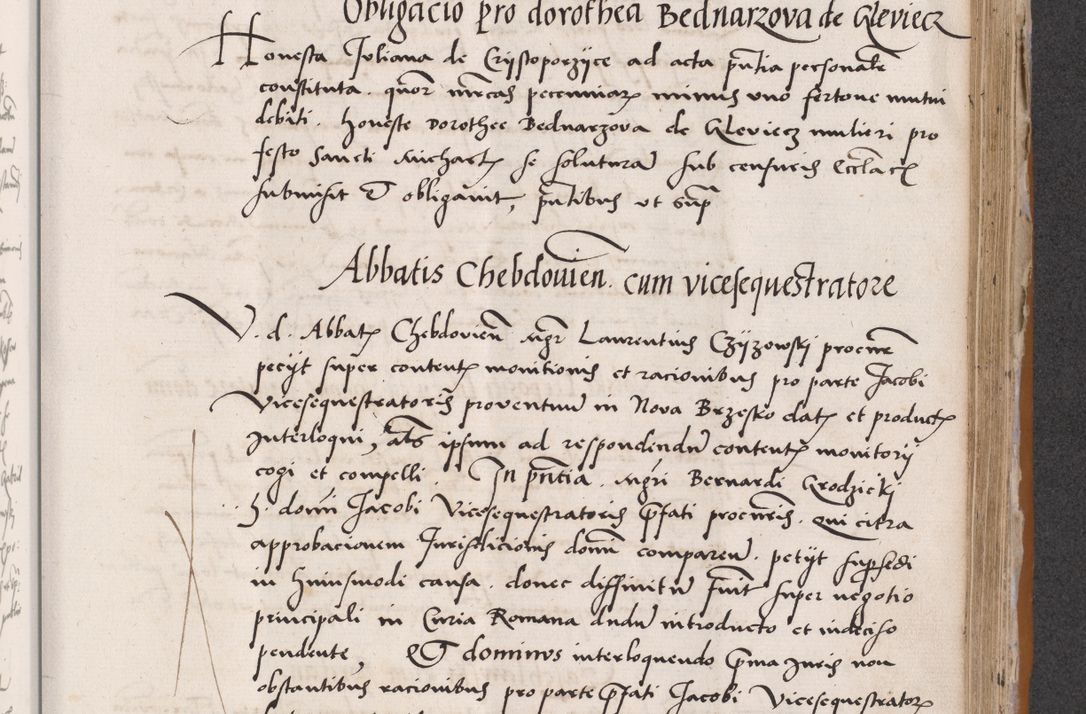 Obligacio pro dorothea Bednarzova de Gleviecz
Honesta Juliana de Crzistoporzijce ad acta pntia personalr
constituta. quor mrcas peccuniar minus uno fertone mutui
debiti. honeste Dorothee Bednarzova de Gleviecz mulieri pro
festo Sancti Michael se soluturam sub censuris Eccl
submisit et obligavit, pntibus ut supr
Abbatis Chebdovien. cum vicesequestratore
V. d. Abbat Chebdovien mgr Laurentius Czijzowskj procur
pecijt super content monitionis et racionibus pro parte Jacobi
Vicesequestratoris proventuum in Nova Brzesko dat et product
Interloqui, als ipsum ad respondendum content monitorij
cogi et compelli. In pntia. mgri Bernardi Grodzickj
h. domi Jacobi Vicesequestratoris pfati procuris. qui citra
approbacionem Jurisdicionis domi comparen. petijt supsedi
in huiusmodi causa. donec diffinitum fuit super negotio
principali in Curia Romana dudum introducto et indeciso
pendente, Et dominus interloquendo pma Juris non
obstantibus racionibus pro parte pfati Jacobi Vicesequestrator